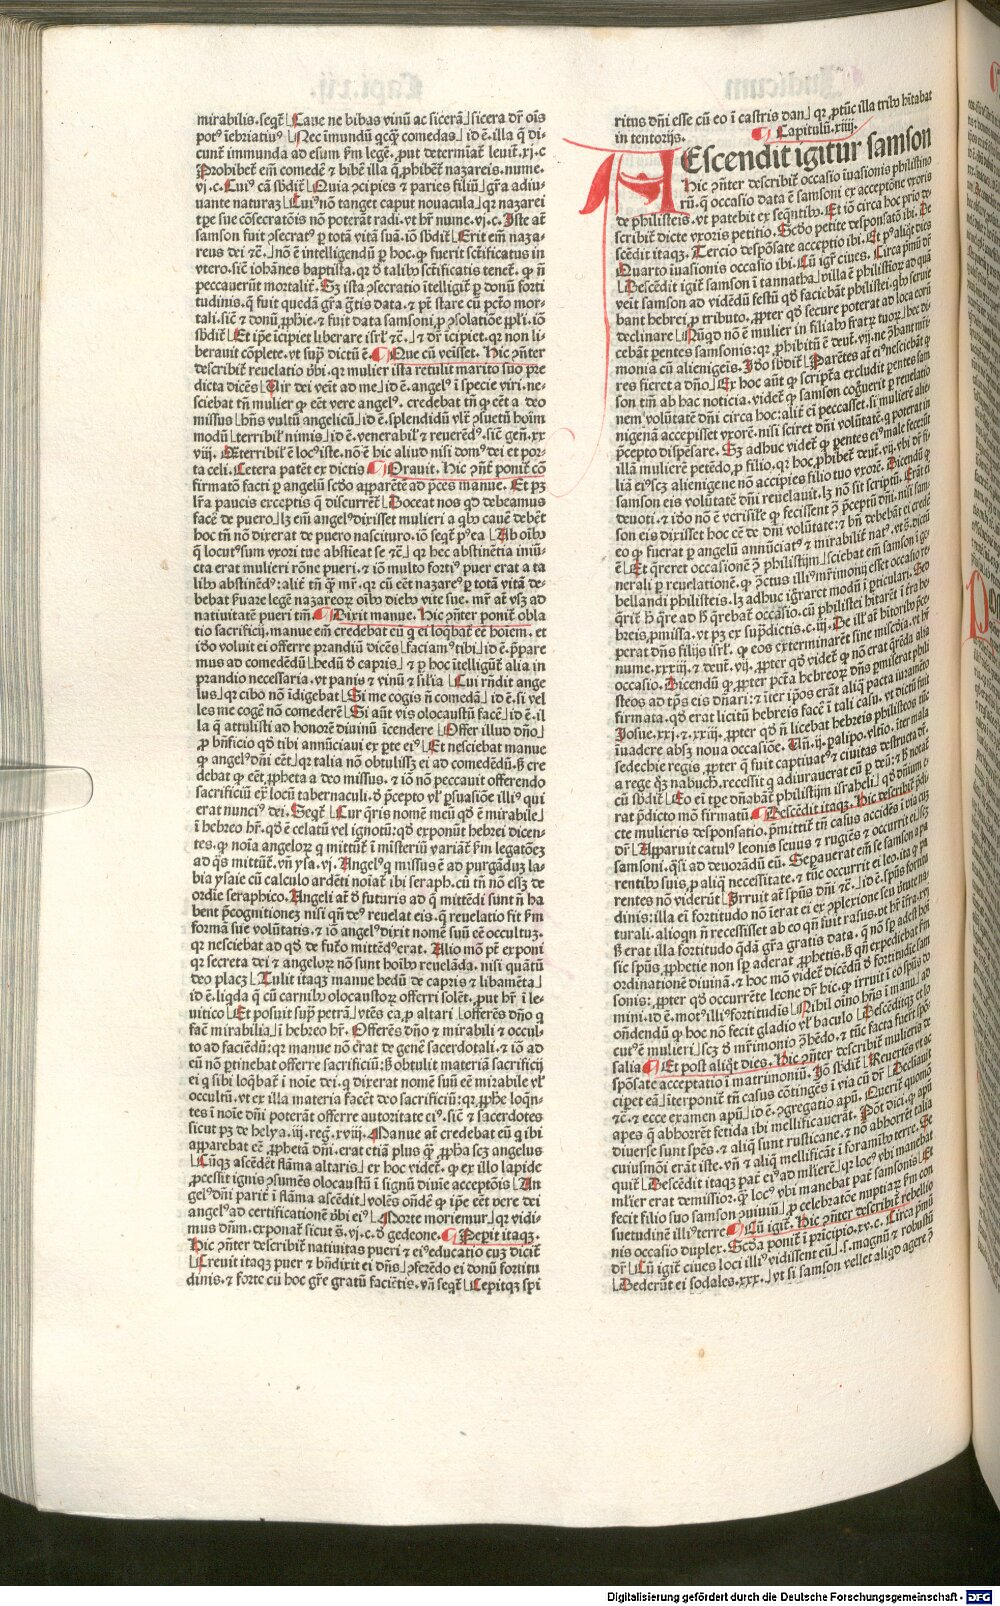 mirabilis. seqt̃ Caue ne bibas vinũ ac sicerã sicera dr̃ oĩs
potꝰ ĩebriatiuꝰ Nec ĩmundũ qͨqꝫ comedas id ẽ illa q̃ di-
cunt̃ immunda ad esum ẜm legẽ, ꝓut determiat̃ leuit. xj. c
Prohibet̃ em̃ comedẽ ⁊ bibẽ illa q̃ ꝓhibet̃ nazareis. nume.
vj. c. Cuiꝰ cã sb̃dit̃ Quia ↄ̨cipies ⁊ paries filiũ gr̃a adiu-
uante naturaʒ Cuiꝰ nõ tanget caput nouacula qꝛ nazarei
tꝑe sue cõsecratõis nõ poterãt radi. vt hr̃ nume. vj. c. Iste at̃
samson fuit ↄsecratꝰ ꝑ totã vitã suã. iõ sb̃dit̃ Erit em̃ naza-
reus dei ⁊c̃. nõ ẽ intelligendũ ꝑ hoc. ꝙ fuerit sc̃tificatus in
vtero. sic̃ iohãnes baptista. qꝛ ð talibꝰ sc̃tificatis tenet̃. ꝙ ñ
peccauerũt mortalit̃. Sʒ ista ↄsecratio ĩtelligit̃ ꝑ donũ forti
tudinis. q̃ fuit quedã gr̃a g̃tis data. ⁊ pt̃ stare cũ pctõ mor-
tali. sic̃ ⁊ donũ ꝓphie. ⁊ fuit data samsoni ꝓ ↄsolatiõe ppl̃i. iõ
sb̃dit̃ Et ip̃e icipiet liberare isrl̃ ⁊c̃. ⁊ dr̃ icipiet. qꝛ non li-
berauit cõplete. vt supͣ dictũ ẽ. Que cũ veisset. Hic ↄñter
describit̃ reuelatio ðbi eiꝰ. qꝛ mulier ista retulit marito suo pre
dicta dicẽs Vir dei veĩt ad me id ẽ. angelꝰ ĩ specie viri. ne-
sciebat tñ mulier ꝙ eẽt vere angelꝰ. credebat tñ ꝙ eẽt a deo
missus hñs vultũ angelicũ id ẽ. splendidũ vl̃ ↄsuetũ hoĩm
modũ terribil̃ nimis id ẽ. venerabil̃ ⁊ reuerẽdꝰ. sic̃ geñ. xx
viij. Terribil̃ ẽ locꝰ iste. nõ ẽ hic aliud nisi domꝰ dei et por-
ta celi. Cetera patẽt ex dictis Orauit. Hic ↄñt̃ ponit̃ cõ
firmatõ facti ꝑ angelũ scðo apparẽtẽ ad p̃ces manue. Et pꝫ
lr̃a paucis exceptis q̃ discurrẽt̃ Doceat nos qð debeamus
facẽ de puero lʒ em̃ angelꝰ dixisset mulieri a qbꝰ cauẽ debẽt
hoc tñ nõ dixerat de puero nascituro. iõ seqt̃ pꝰea Ab oĩbꝰ
q̃ locutꝰ sum vxori tue abstieat se ⁊c̃. qꝛ hec abstinẽtia iniũ-
cta erat mulieri rõne pueri. ⁊ iõ multo fortiꝰ puer erat a ta
libꝰ abstinẽdꝰ: alit̃ tñ q̃ mr̃. qꝛ cũ eẽt nazareꝰ ꝑ totã vitã de-
bebat ẜuare legẽ nazareoꝝ oĩbꝰ diebꝰ vite sue. mr̃ at̃ vsʒ ad
natiuitatẽ pueri tm̃. Dixit manue. Hic ↄñter ponit̃ obla
tio sacrificij. manue em̃ credebat eũ q̃ ei loq̃bat̃ eẽ hoiem. et
ido voluit ei offerre prandiũ dicẽs faciamꝰ tibi id ẽ. ꝑpare
mus ad comedẽdũ hedũ ð capris ⁊ ꝑ hoc ĩtelligũt̃ alia in
prandio necessaria. vt panis ⁊ vinũ ⁊ sil̃ia Cui rñdit ange
lus. qꝛ cibo nõ ĩdigebat Si me cogis ñ comedã id ẽ. si vel
les me cogẽ nõ comederẽ Si aũt vis olocaustũ facẽ id ẽ. il
la q̃ attulisti ad honorẽ diuinũ ĩcendere Offer illud dño
ꝓ bñficio qð tibi annũciaui ex ꝑte eiꝰ Et nesciebat manue
ꝙ angelꝰ dñi eẽt. qꝛ talia nõ obtulissʒ ei ad comedẽdũ. ẜ cre
debat ꝙ eẽt ꝓpheta a deo missus. ⁊ iõ nõ peccauit offerendo
sacrificiũ exͣ locũ tabernaculi. ð p̃cepto vl̃ ꝑsuasiõe illiꝰ qui
erat nunciꝰ dei. Seqt̃ Cur q̃ris nomẽ meũ qð ẽ mirabile
ĩ hebreo hr̃. qð ẽ celatũ vel ignotũ: qð exponũt hebrei dicen-
tes. ꝙ noĩa angeloꝝ q̃ mittũt̃ ĩ misteriũ variãt̃ ẜm legatõeʒ
ad q̃s mittũt̃. vñ ysa. vj. Angelꝰ q̃ missus ẽ ad purgãduʒ la-
bia ysaie cũ calculo ardẽti noĩat̃ ibi seraph. cũ tñ nõ essʒ de
ordĩe seraphico. Angeli at̃ ð futuris ad q̃ mittẽdi sunt ñ ha
bent p̃cognitionẽʒ nisi qñ deꝰ reuelat eis. q̃ reuelatio fit ẜm
formã sue volũtatis. ⁊ iõ angelꝰ dixit nomẽ suũ eẽ occultuʒ.
qꝛ nesciebat ad qð de futͦo mittẽdꝰ erat. Alio mõ pt̃ exponi
qꝛ secreta dei ⁊ angeloꝝ nõ sunt hoĩbꝰ reuelãda. nisi quãtũ
deo placʒ Tulit itaqʒ manue hedũ de capris ⁊ libamẽta
id ẽ. liqda q̃ cũ carnibꝰ olocaustoꝝ offerri solẽt. ꝓut hr̃ ĩ le-
uitico Et posuit supͣ petrã vtẽs ea ꝓ altari offerẽs dño q̃
fac̃ mirabilia ĩ hebreo hr̃. Offerẽs dño ⁊ mirabili ⁊ occul-
to ad faciẽdũ: qꝛ manue nõ erat de genẽ sacerdotali. ⁊ iõ ad
eũ nõ ptinebat offerre sacrificiũ: ẜ obtulit materiã sacrificij
ei q̃ sibi loq̃bat̃ ĩ noĩe dei. q̃ dixerat nomẽ suũ eẽ mirabile vl̃
occultũ. vt ex illa materia facẽt deo sacrificiũ: qꝛ ꝓphe loq̃n-
tes ĩ noĩe dñi poterãt offerre autoritate eiꝰ. sic̃ ⁊ sacerdotes
sicut pꝫ de helya. iij. reg̃. xviij. Manue at̃ credebat eũ q̃ ibi
apparebat eẽ ꝓphetã dñi. erat etiã plus q̃ ꝓpha scʒ angelus
Cũqʒ ascẽdẽt flãma altaris ex hoc videt̃. ꝙ ex illo lapide
ꝓcessit ignis ↄsumẽs olocaustũ ĩ signũ diuine acceptõis An
gelꝰ dñi parit̃ ĩ flãma ascẽdit volẽs oñdẽ ꝙ ip̃e eẽt vere dei
angelꝰ ad certificationẽ ðbi eiꝰ Morte moriemur qꝛ vidi-
mus dñm. exponat̃ sicut sͣ. vj. c. ð gedeone. Peperit itaqʒ.
Hic ↄñter describit̃ natiuitas pueri ⁊ eiꝰ educatio cuʒ dicit̃
Creuit itaqʒ puer ⁊ bñdixit ei dñs ↄferẽdo ei donũ fortitu
dinis. ⁊ forte cũ hoc gr̃e gratũ faciẽtis. vñ seqt̃ Cepitqʒ sp̃i
ritus dñi esse cũ eo ĩ castris dan qꝛ ꝓtũc illa tribꝰ hĩtabat
in tentorijs. Capitulũ. xiiij.
Escendit igitur samson
Hic ↄñter describit̃ occasio ĩuasionis philistino
rũ. q̃ occasio data ẽ samsoni ex acceptõne vxoris
de philisteis. vt patebit ex seq̃ntibꝰ. Et iõ circa hoc prĩo de-
scribit̃ dicte vxoris petitio. Scðo petite desponsatõ ibi. De
scẽdit itaqʒ. Tercio despõsate acceptio ibi. Et pꝰ aliq̃t dies
Quarto ĩuasionis occasio ibi. Cũ igr̃ ciues. Circa p̃mũ dr̃
Descẽdit igit̃ samson ĩ tannatha villa ẽ philistioꝝ ad quã
veĩt samson ad vidẽdũ festũ qð faciebãt philistei. qbꝰ serue
bant hebrei ꝓ tributo. ꝓpter qð secure poterat ad loca eorũ
declinare Nũqͥd nõ ẽ mulier in filiabꝰ fratꝝ tuoꝝ hec di-
cebãt pentes samsonis: qꝛ ꝓhibitũ ẽ deut̃. vij. ne ↄ̨herẽt mr̃i-
monia cũ alienigeis. Ido sb̃dit̃ Parẽtes at̃ eiꝰ nesciebãt ꝙ
res fieret a dño. Ex hoc aũt ꝙ scripta excludit pentes sam
son tm̃ ab hac noticia. videt̃ ꝙ samson cogñuerit ꝑ reuelatio
nem volũtatẽ dñi circa hoc: alit̃ ei peccasset. si mulierẽ alie-
nigenã accepisset vxorẽ. nisi sciret dñi volũtatẽ. q̃ poterat in
p̃cepto dispẽsare. Sʒ adhuc videt̃ ꝙ pentes eiꝰ male fecerũt
illã mulierẽ petẽdo ꝓ filio. qꝛ hoc ꝓhibet̃ deut̃. vij. vbi dr̃ fi-
liã eiꝰ scʒ alienigene nõ accipies filio tuo vxorẽ. Dicendũ ꝙ
samson eis volũtatẽ dñi reuelauit. lʒ nõ sit scriptũ. Erãt ei
deuoti. ⁊ ido nõ ẽ verisil̃e ꝙ fecissent ↄ̨ p̃ceptũ dñi. nisi sam
son eis dixisset hoc eẽ de dñi volũtate: ⁊ bñ debebãt ei credẽ
eo ꝙ fuerat ꝑ angelũ annũciatꝰ ⁊ mirabilit̃ natꝰ. vt sͣ. dictũ
ẽ Et q̃reret occasionẽ ↄ̨ philistijm sciebat em̃ samson ĩ ge-
nerali ꝑ reuelationẽ. ꝙ ↄ̨ctus illiꝰ mr̃imonij esset occasio re-
bellandi philisteis. lʒ adhuc ignraret modũ ĩ ꝑticulari. Sed
q̃rit̃ hͥ q̃re ad hͦ q̃rebat̃ occasio. cũ philistei hitarẽt ĩ trã he
breis ꝓmissa. vt pꝫ ex supͣdictis. c. iij. De ill̃ at̃ hitoribꝰ p̃ce-
perat dñs filijs isrl̃. ꝙ eos exterminarẽt sine miscõia. vt hr̃
nume. xxxiij. ⁊ deut̃. vij. ꝓpter qð videt̃ ꝙ nõ erat q̃rẽda alia
occasio. Dicendũ ꝙ ꝓpter pctã hebreoꝝ dñs ꝑmiserat phili
steos ad tꝑs eis dñari: ⁊ ĩter ip̃os erãt aliq̃ pacta iuramẽto
firmata. qð erat licitũ hebreis facẽ ĩ tali casu. vt dictũ fuit
Iosue. xxj. ⁊. xxiij. ꝓpter qð ñ licebat hebreis philisteos tũc
ĩuadere absʒ noua occasiõe. Vñ. ij. palipo. vltĩo. iter mala
sedechie regis ꝓpter q̃ fuit captiuatꝰ ⁊ ciuitas destructa dr̃.
a rege q̃ʒ nabuch. recessit q̃ adiurauerat eũ ꝑ deũ: ⁊ hͦ notat̃
cũ sb̃dit̃ Eo ei tꝑe dñabãt̃ philistijm israheli qð dñium e-
rat p̃dicto mõ firmatũ Descẽdit itaqʒ. Hic describit̃ p̃di-
cte mulieris desponsatio. p̃mittit̃ tñ casus accidẽs ĩ via cũ
dr̃ Apparuit catulꝰ leonis seuus ⁊ rugiẽs ⁊ occurrit ei scʒ
samsoni. q̃si ad deuorãdũ eũ. Seꝑauerat em̃ se samson a pa
rentibꝰ suis ꝓ aliq̃ necessitate. ⁊ tũc occurrit ei leo. ita ꝙ pa
rentes nõ viderũt Irruit at̃ spũs dñi ⁊c̃. id ẽ. spũs fortitu-
dinis: illa ei fortitudo nõ ĩerat ei ex ↄplexione seu ðtute na-
turali. alioqn̄ ñ recessisset ab eo qñ fuit rasus. vt hr̃ ĩfͣ. xvj.
ẜ erat illa fortitudo q̃dã gr̃a gratis data. q̃ nõ sꝑ adest hoi
sic spũs ꝓphetie non sꝑ aderat ꝓphetis. ẜ qñ expediebat ẜm
ordinationẽ diuinã. ⁊ hoc mõ videt̃ dicẽdũ ð fortitudĩe sam
sonis: ꝓpter qð occurrẽte leone dr̃ hic. ꝙ irruit ĩ eo spũs do
mini. id ẽ. motꝰ illiꝰ fortitudis Nihil oĩno hñs ĩ manu ad
oñdendũ ꝙ hoc nõ fecit gladio vl̃ baculo Descẽditqʒ et lo-
cutꝰ ẽ mulieri scʒ ð mr̃imonio ↄ̨hẽdo. ⁊ tũc facta fuert̃ spõ
salia Et post aliq̃t dies. Hic ↄñter describit̃ mulieris de
sposate acceptatio ĩ matrimoniũ. Iõ sb̃dit̃ Reuertẽs vt ac
ciperet eã iterponit̃ tñ casus cõtingẽs ĩ via cũ dr̃ Declinauit
⁊c̃. ⁊ ecce examen apũ id ẽ. ↄgregatio apũ. Querit̃ quomo
apes q̃ abhorrẽt fetida ibi mellificauerãt. Põt dici. ꝙ apũ
diuerse sunt spẽs. ⁊ aliq̃ sunt rusticane. ⁊ nõ abhorrẽt talia
cuiusmoi erãt iste. vñ ⁊ aliq̃ mellificãt ĩ foramĩbꝰ terre. Se
quit̃ Descẽdit itaqʒ pat̃ eiꝰ ad mulierẽ qꝛ locꝰ vbi manebat
ml̃ier erat demissioꝛ. q̃ locꝰ vbi manebat pat̃ samsonis Et
fecit filio suo samson ↄuiuiũ ꝓ celebratõe nuptiaꝝ ẜm con
suetudinẽ illiꝰ terre Cũ igit̃. Hic ↄñter describit̃ rebellio
nis occasio duplex. Scða ponit̃ ĩ pricipio. xv. c. Circa p̃mũ
dr̃ Cũ igit̃ ciues loci illiꝰ vidissent eũ. s. magnũ ⁊ robustũ
Dederũt ei sodales. xxx. vt si samson vellet aliqͥd agere ↄ̨
Digitalisierung gefördert durch die Deutsche Forschungsgemeinschaft - DFG